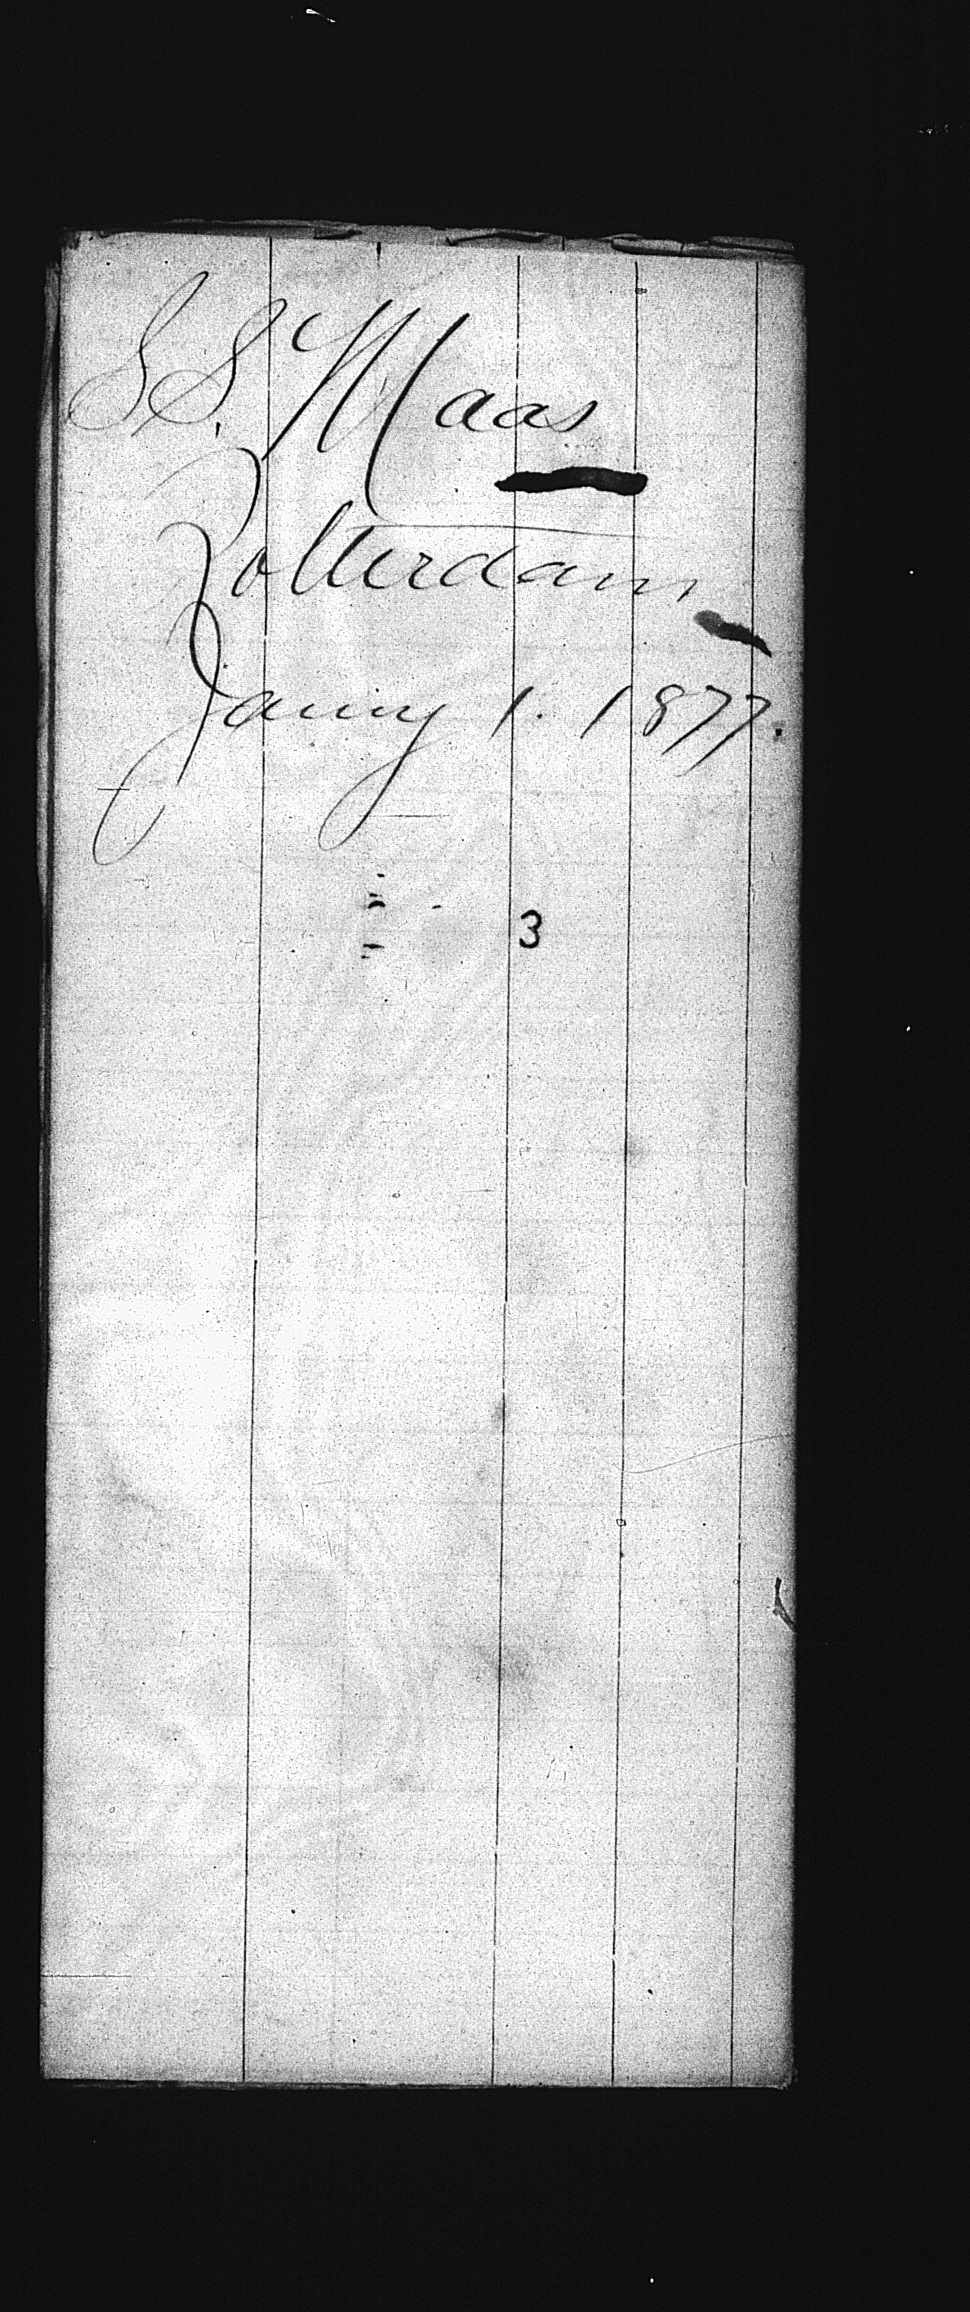 S.S. Maas
Rotterdam
Jany 1. 1877.
3